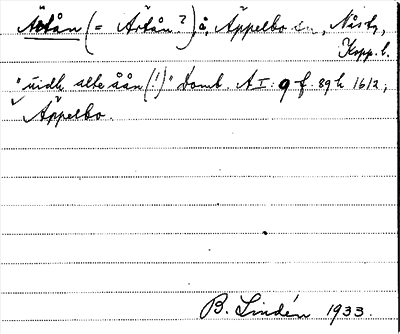 Ältån (= Ärtån?) å, Äppelbo sn, Nås hd,
Kopp. l.
"uidh alte åån(!)" Domb. A I: 9 f. 89 h 1612;
Äppelbo.
B. Lindén 1933.